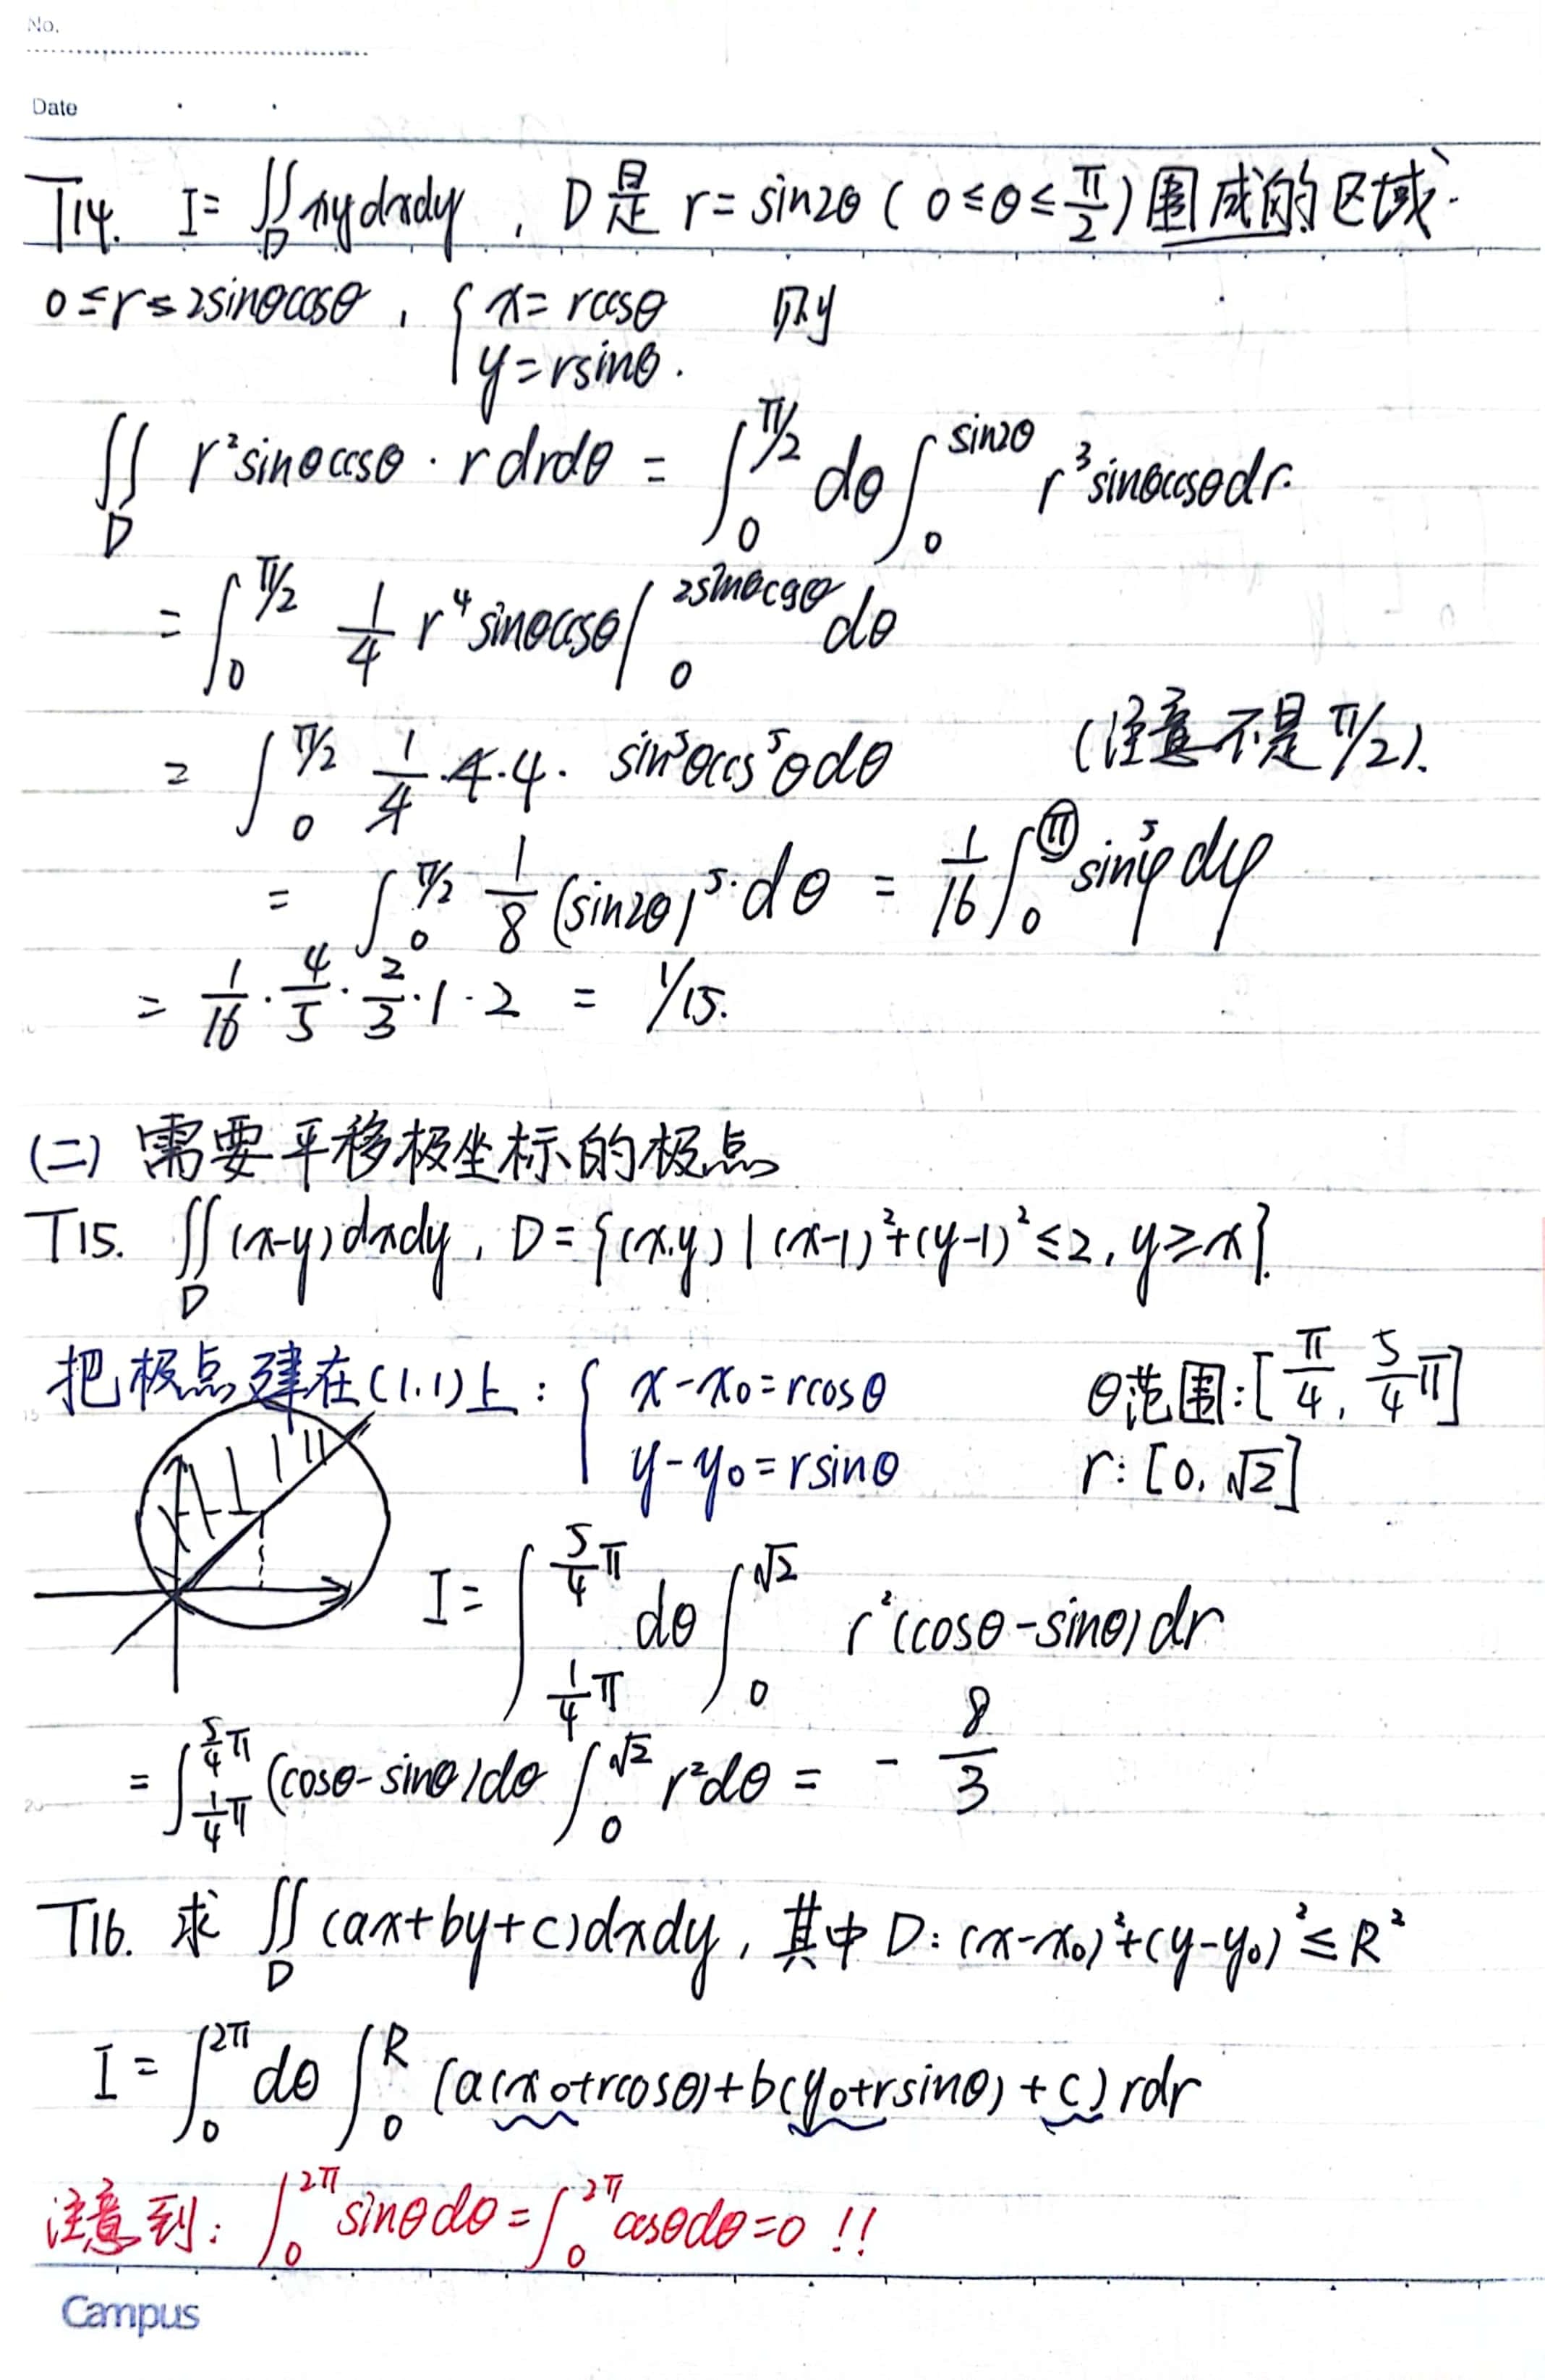 No.
Date
T14. I = ∬_D xy dxdy , D是 r = sin2θ ( 0 ≤ θ ≤ π/2 ) 围成的区域.
0 ≤ r ≤ 2sinθcosθ , { x = rcosθ 则
y = rsinθ .
∬_D r² sinθcosθ · r drdθ = ∫_0^{π/2} dθ ∫_0^{sin2θ} r³ sinθcosθ dr.
= ∫_0^{π/2} 1/4 r⁴ sinθcosθ |_0^{2sinθcosθ} dθ
= ∫_0^{π/2} 1/4 · 4 · 4 · sin⁵θcos⁵θ dθ (注意不是 π/2).
= ∫_0^{π/2} 1/8 (sin2θ)⁵ · dθ = 1/16 ∫_0^{π} sin⁵φ dφ
= 1/16 · 4/5 · 2/3 · 1 · 2 = 1/15.
(二) 需要平移极坐标的极点
T15. ∬_D (x-y) dxdy , D = {(x,y) | (x-1)²+(y-1)² ≤ 2, y ≥ x}.
把极点建在(1,1)上 : { x - x₀ = rcosθ θ范围: [π/4, 5/4 π]
y - y₀ = rsinθ r: [0, √2]
I = ∫_{1/4 π}^{5/4 π} dθ ∫_0^{√2} r² (cosθ - sinθ) dr
= ∫_{1/4 π}^{5/4 π} (cosθ - sinθ) dθ ∫_0^{√2} r² dθ = - 8/3
T16. 求 ∬_D (ax+by+c) dxdy , 其中 D: (x-x₀)²+(y-y₀)² ≤ R²
I = ∫_0^{2π} dθ ∫_0^R (a(x₀+rcosθ)+b(y₀+rsinθ)+c) rdr
注意到: ∫_0^{2π} sinθdθ = ∫_0^{2π} cosθdθ = 0 !!
Campus